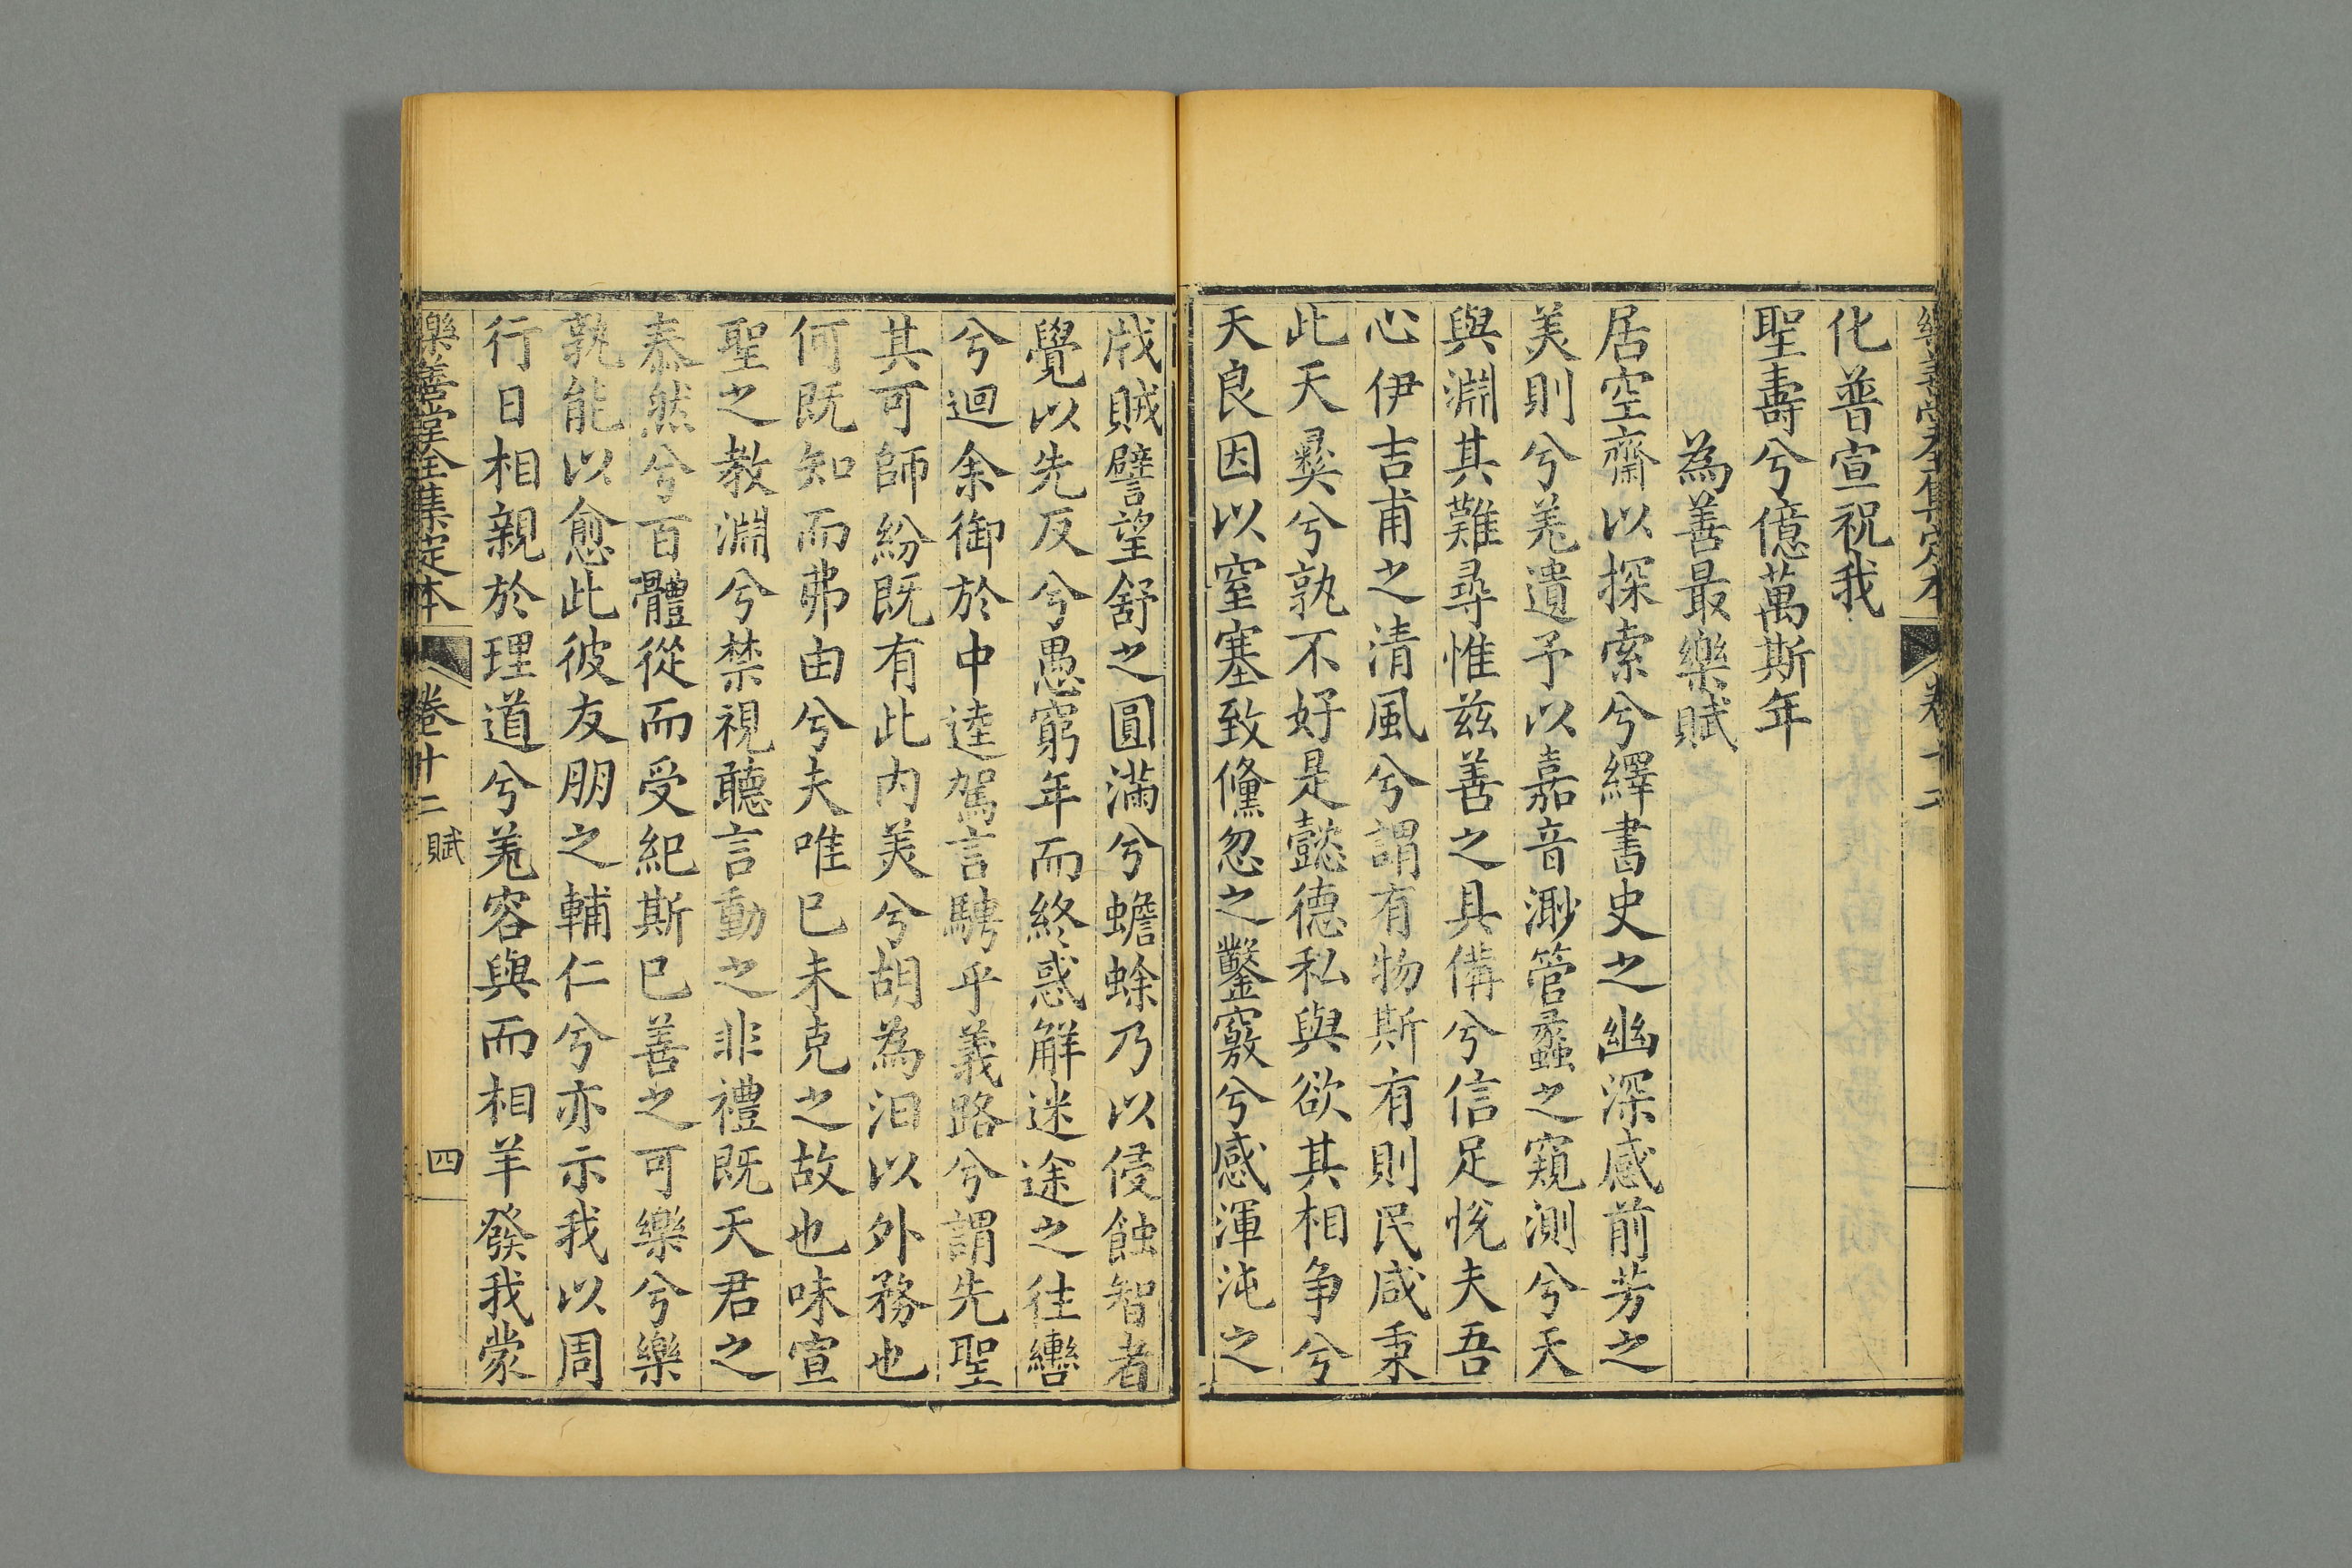 樂善堂全集定本 卷十二
化普宣祝我
聖壽兮億萬斯年
為善最樂賦
居空齋以探索兮繹書史之幽深感前芳之
美則兮羌遺予以嘉音渺管蠡之窺測兮天
與淵其難尋惟兹善之具備兮信足悅夫吾
心伊吉甫之清風兮謂有物斯有則民咸秉
此天彞兮孰不好是懿德私與欲其相争兮
天良因以窒塞致儵忽之鑿竅兮感渾沌之
戕賊譬望舒之圓滿兮蟾蜍乃以侵蝕智者
覺以先反兮愚窮年而終惑解迷途之往轡
兮迴余御於中逵駕言騁乎義路兮謂先聖
其可師紛既有此内美兮胡為汩以外務也
何既知而弗由兮夫唯已未克之故也味宣
聖之教淵兮禁視聽言動之非禮既天君之
泰然兮百體從而受紀斯已善之可樂兮樂
孰能以愈此彼友朋之輔仁兮亦示我以周
行日相親於理道兮羌容與而相羊發我蒙
樂善堂全集定本 卷十二 賦 四